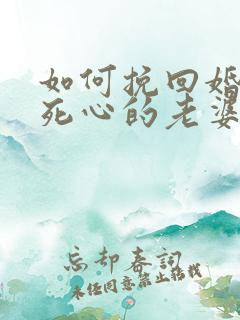 如何挽回婚
死心的老婆
忘却春词
未经同意禁止转载